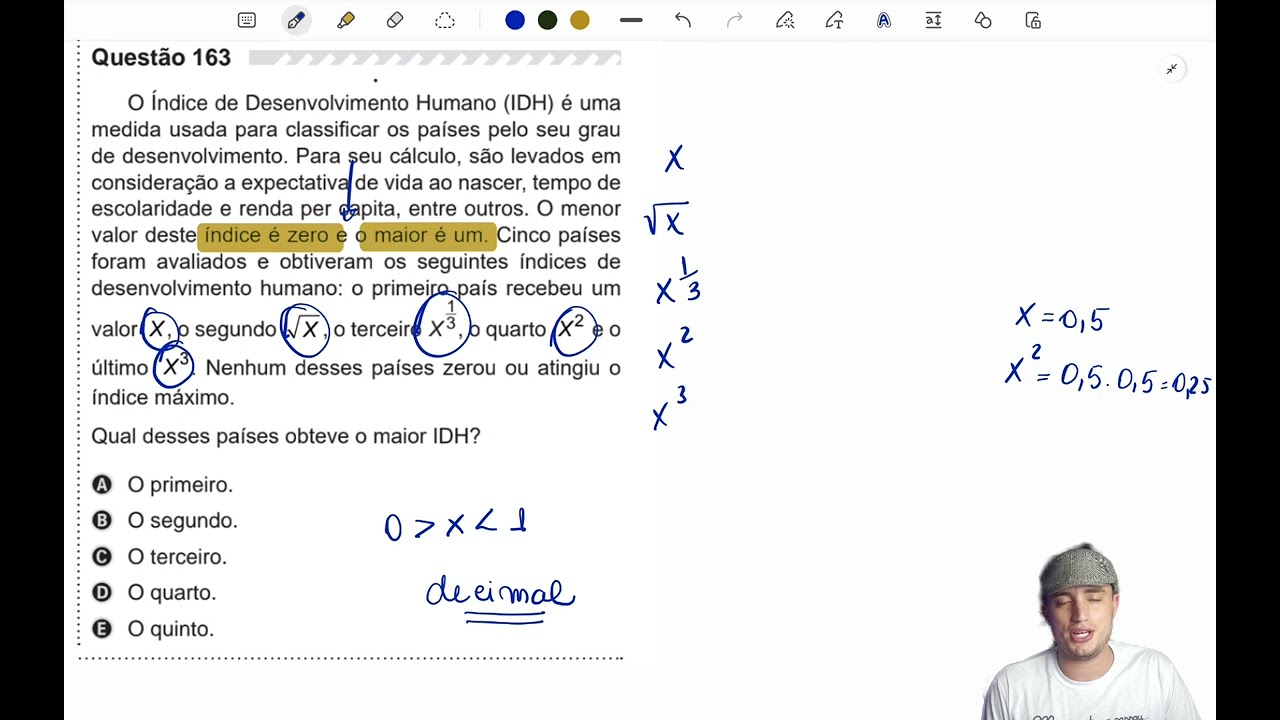 Questão 163
O Índice de Desenvolvimento Humano (IDH) é uma
medida usada para classificar os países pelo seu grau
de desenvolvimento. Para seu cálculo, são levados em
consideração a expectativa de vida ao nascer, tempo de
escolaridade e renda per capita, entre outros. O menor
valor deste índice é zero e o maior é um. Cinco países
foram avaliados e obtiveram os seguintes índices de
desenvolvimento humano: o primeiro país recebeu um
valor X, o segundo √X, o terceiro X^(1/3), o quarto X² e o
último X³. Nenhum desses países zerou ou atingiu o
índice máximo.
Qual desses países obteve o maior IDH?
A O primeiro.
B O segundo.
C O terceiro.
D O quarto.
E O quinto.
0 > x < 1
decimal
x
√x
x^(1/3)
x²
x³
x = 0,5
x² = 0,5 . 0,5 = 0,25